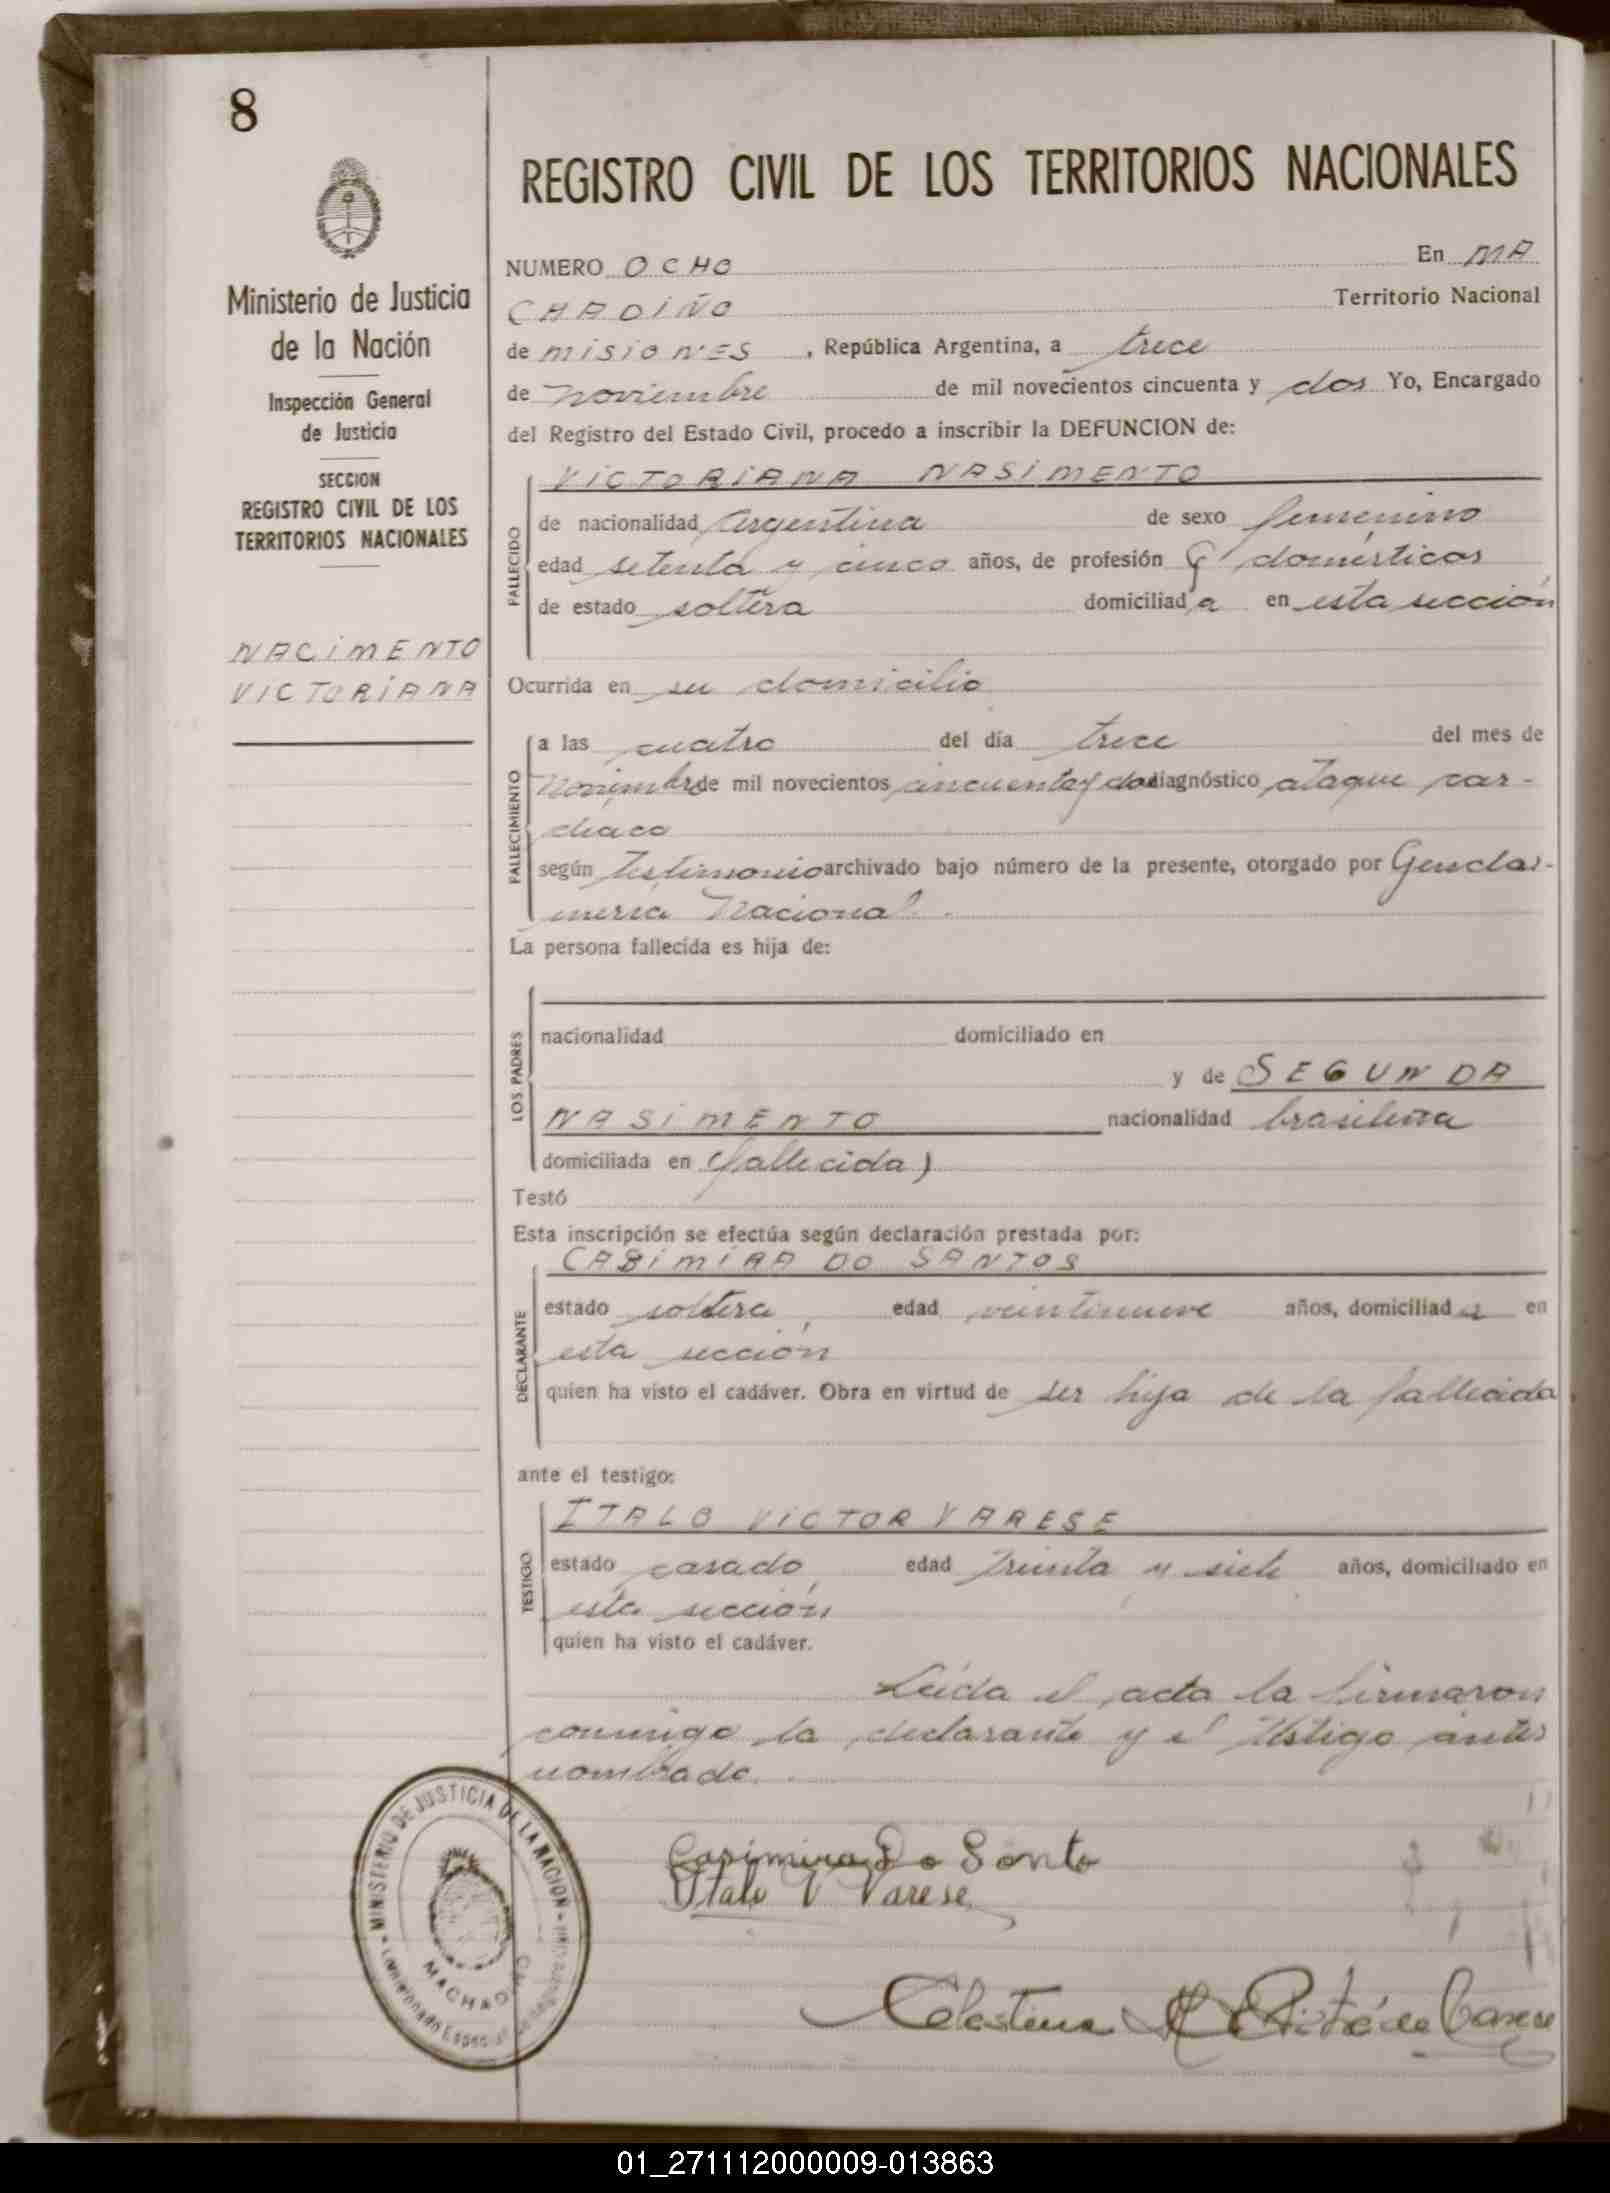 8
Ministerio de Justicia
de la Nación
Inspección General
de Justicia
SECCION
REGISTRO CIVIL DE LOS
TERRITORIOS NACIONALES
NACIMENTO
VICTORIANA
REGISTRO CIVIL DE LOS TERRITORIOS NACIONALES
NUMERO OCHO En MA
CHADIÑO Territorio Nacional
de MISIONES, República Argentina, a trece
de Noviembre de mil novecientos cincuenta y dos Yo, Encargado
del Registro del Estado Civil, procedo a inscribir la DEFUNCION de:
VICTORIANA NASIMENTO
FALLECIDO
de nacionalidad Argentina de sexo femenino
edad setenta y cinco años, de profesión Q' domésticos
de estado soltera domiciliada en esta sección
Ocurrida en su domicilio
FALLECIMIENTO
a las cuatro del día trece del mes de
Noviembre de mil novecientos cincuenta y dos diagnóstico ataque car-
diaco
según testimonio archivado bajo número de la presente, otorgado por Gendar-
meria Nacional.
La persona fallecida es hija de:
LOS PADRES
nacionalidad domiciliado en
y de SEGUNDA
NASIMENTO nacionalidad brasileña
domiciliada en (fallecida)
Testó
Esta inscripción se efectúa según declaración prestada por:
CASIMIRA DO SANTOS
DECLARANTE
estado soltera, edad veintinueve años, domiciliada en
esta sección
quien ha visto el cadáver. Obra en virtud de ser hija de la fallecida.
ante el testigo:
ITALO VICTOR VARESE
TESTIGO
estado casado, edad treinta y siete años, domiciliado en
esta sección
quien ha visto el cadáver.
Leída el acta la firmaron
conmigo la declarante y el testigo antes
nombrado.
MINISTERIO DE JUSTICIA DE LA NACION
MACHADI
Casimira Do Santo
Italo V Varese
Celestina Varese
01_271112000009-013863